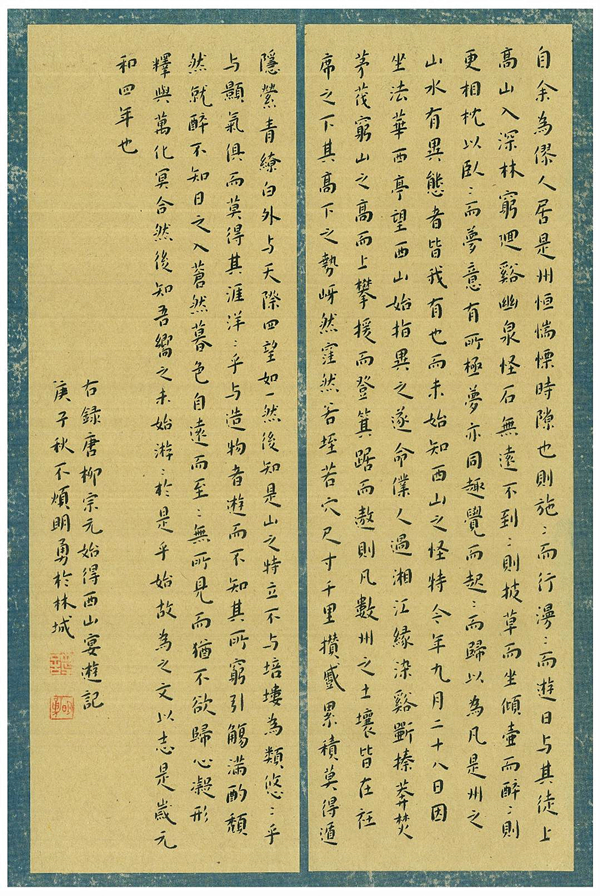 自余為僇人居是州恒惴慄時隙也則施〻而行漫〻而遊日与其徒上
高山入深林窮迴谿幽泉怪石無遠不到〻則披草而坐傾壺而醉〻則
更相枕以臥〻而夢意有所極夢亦同趣覺而起〻而歸以為凡是州之
山水有異態者皆我有也而未始知西山之怪特今年九月二十八日因
坐法華西亭望西山始指異之遂命僕人過湘江緣染谿斫榛莽焚
茅茷窮山之高而上攀援而登箕踞而遨則凡數州之土壤皆在衽
席之下其高下之勢岈然窪然若垤若穴尺寸千里攢蹙累積莫得遁
隱縈青繚白外与天際四望如一然後知是山之特立不与培塿為類悠〻乎
与顥氣俱而莫得其涯洋〻乎与造物者遊而不知其所窮引觴滿酌頹
然就醉不知日之入蒼然暮色自遠而至〻無所見而猶不欲歸心凝形
釋與萬化冥合然後知吾嚮之未始游〻於是乎始故為之文以志是歲元
和四年也
右錄唐柳宗元始得西山宴遊記
庚子秋不煩明勇於林城